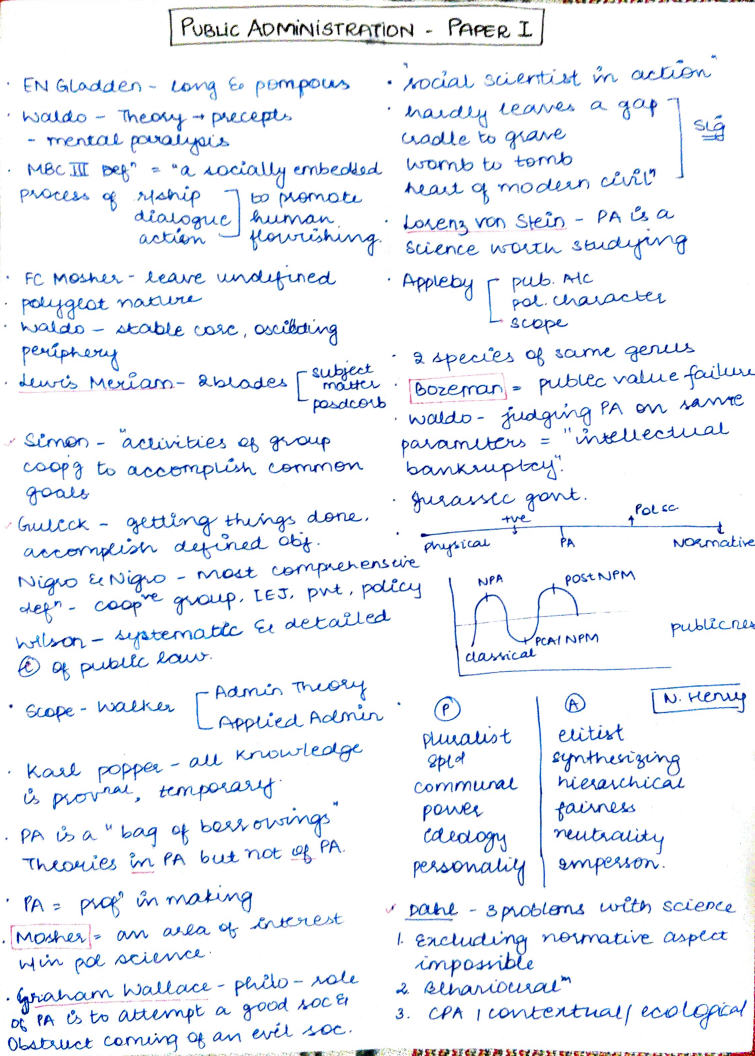 PUBLIC ADMINISTRATION - PAPER I
· EN Gladden - Long & pompous
· Waldo - Theory → precepts
- mental paralysis
· MBC III Defⁿ = "a socially embedded
process of r/ship
dialogue
action
to promote
human
flourishing.
· FC Mosher - leave undefined
· polyglot nature
· Waldo - stable core, oscillating
periphery
· Lewis Meriam - 2 blades
subject
matter
posdcorb
Simon - "activities of group
coopg to accomplish common
goals
Gulick - getting things done,
accomplish defined obj.
Nigro & Nigro - most comprehensive
defⁿ - coopve group, LEJ, pvt, policy
Wilson - systematic & detailed
of public law.
· Scope - Walker
Admin Theory
Applied Admin
· Karl popper - all knowledge
is provnal, temporary.
· PA is a "bag of borrowings"
Theories in PA but not of PA.
· PA = profⁿ in making
· Mosher = an area of interest
w/in pol science.
· Graham Wallace - philo - role
of PA is to attempt a good soc &
obstruct coming of an evil soc.
· "social scientist in action"
· hardly leaves a gap
cradle to grave
womb to tomb
heart of modern civilⁿ
Sig
· Lorenz von Stein - PA is a
science worth studying
· Appleby
pub. A/c
pol. character
scope
· 2 species of same genus
· Bozeman = public value failure
· Waldo - judging PA on same
parameters = "intellectual
bankruptcy".
· Jurassic govt.
+ve
Pol sc.
Physical
PA
Normative
NPA
POST NPM
PCA/NPM
classical
publicnes
N. Henry
P
A
pluralist
elitist
spld
synthesizing
communal
hierarchical
power
fairness
ideology
neutrality
personality
imperson.
Dahl - 3 problems with science
1. Excluding normative aspect
impossible
2. Behaviouralᵐ
3. CPA / contextual / ecological